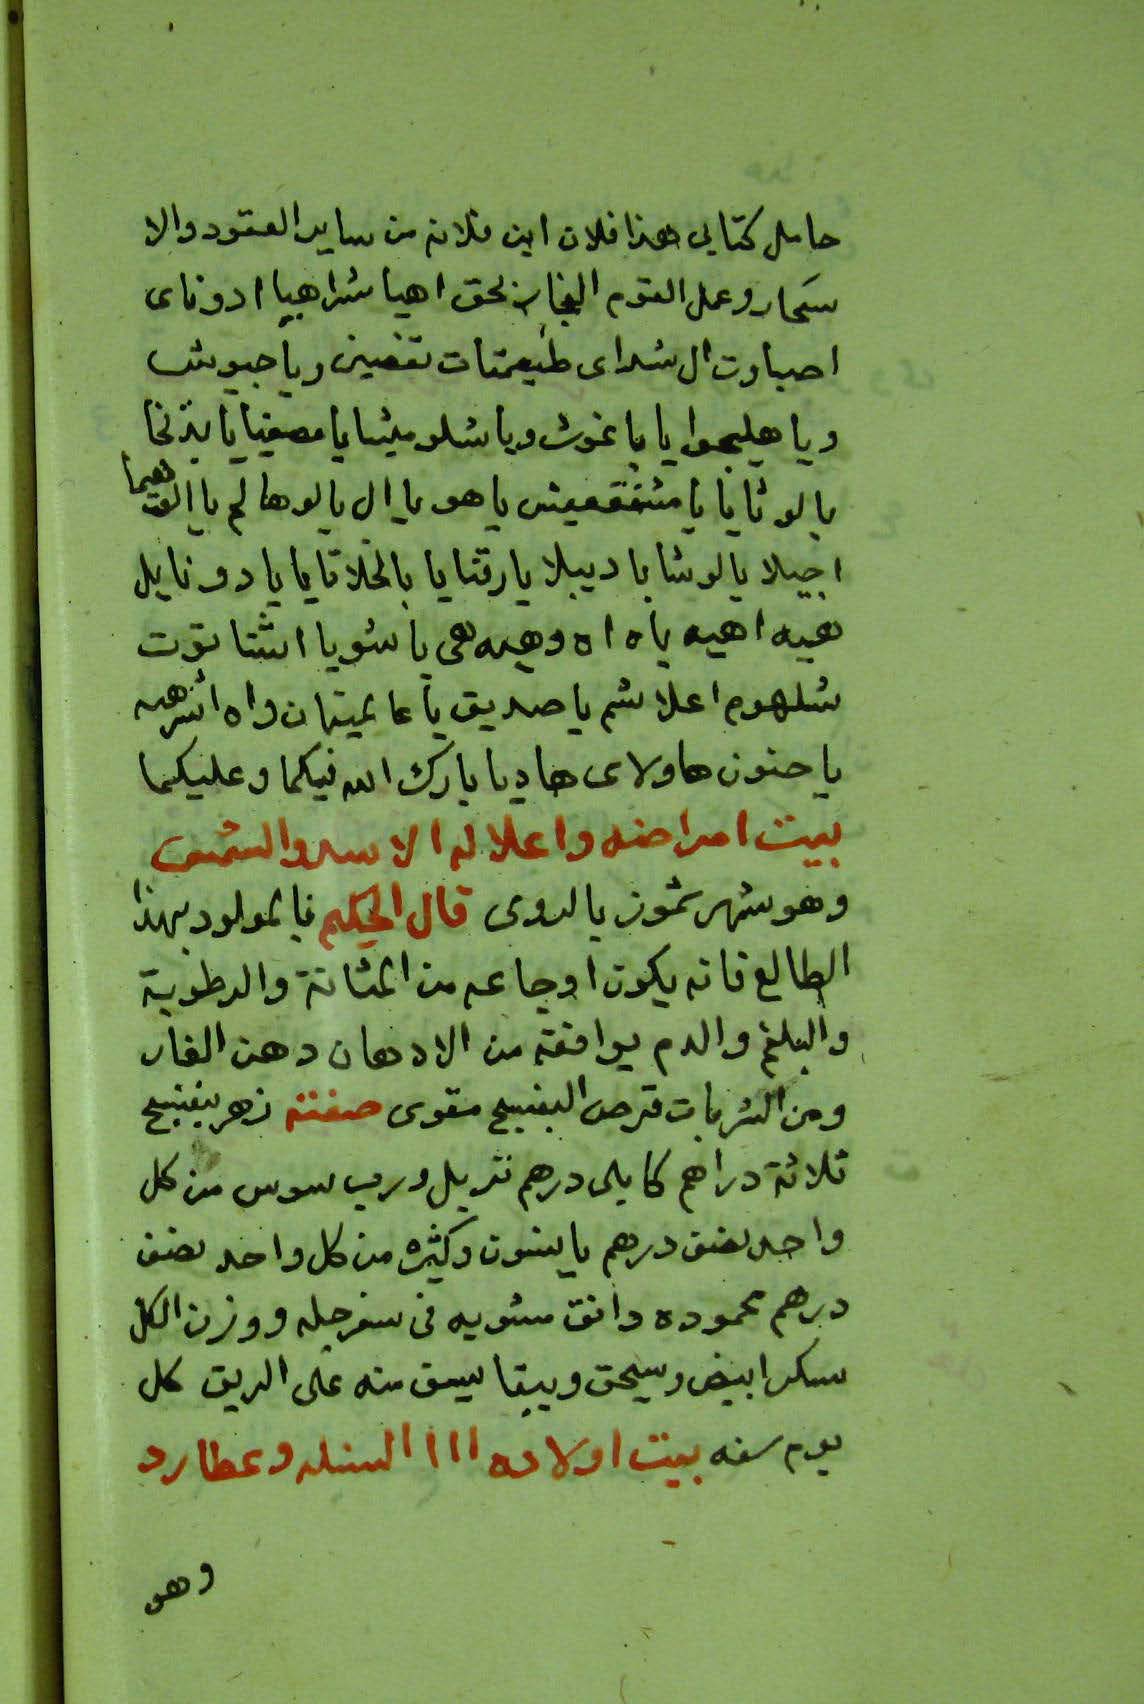 حامل كتابى هذا فلان ابن فلانه من ساير العقود والا
سحار وعمل القوم الفجار بحق اهيا شراهيا ادوناى
اصباوت ال شداى طيعمتات تغفين ويا جيوش
ويا هليجوا يا باغوث ويا شلوميثا يا مصفيا يا بذنخا
يا لوثايا يا مشفقعيش يا هو يا ال يا لوها لم يا الوهيما
اجيلا يا لوشا با ديبلا يا رقتايا يا لخلاقايما يا دونايل
هيه اهيه ياه اه وهيه هى يا شويا اشثا توت
شلهوم اعلا شم يا صديق يا عالميتان واه اشرهيه
يا حنون هاولاى هاديا بارك الله فيكما وعليكما
بيت امراضه واعلاله الاسد والشمس
وهو شهر تموز بالروى قال الحكيم فالمولود بهذا
الطالع فانه يكون اوجاعه من المثانة والرطوبة
والبلغم والدم يوافقه من الادهان دهن الغار
ومن الشربات قرص البنفسج مقوى صفته زهر بنفسج
ثلاثة دراهم كابلى درهم تربل ورب سوس من كل
واحد نصف درهم يا ينسون وكثيره من كل واحد نصف
درهم محموده دانق مشويه فى سفرجله ووزن الكل
سكر ابيض ويسحق ويبقا يسف منه على الريق كل
يوم سفه بيت اولاده ااا السنبله وعطارد
وهو